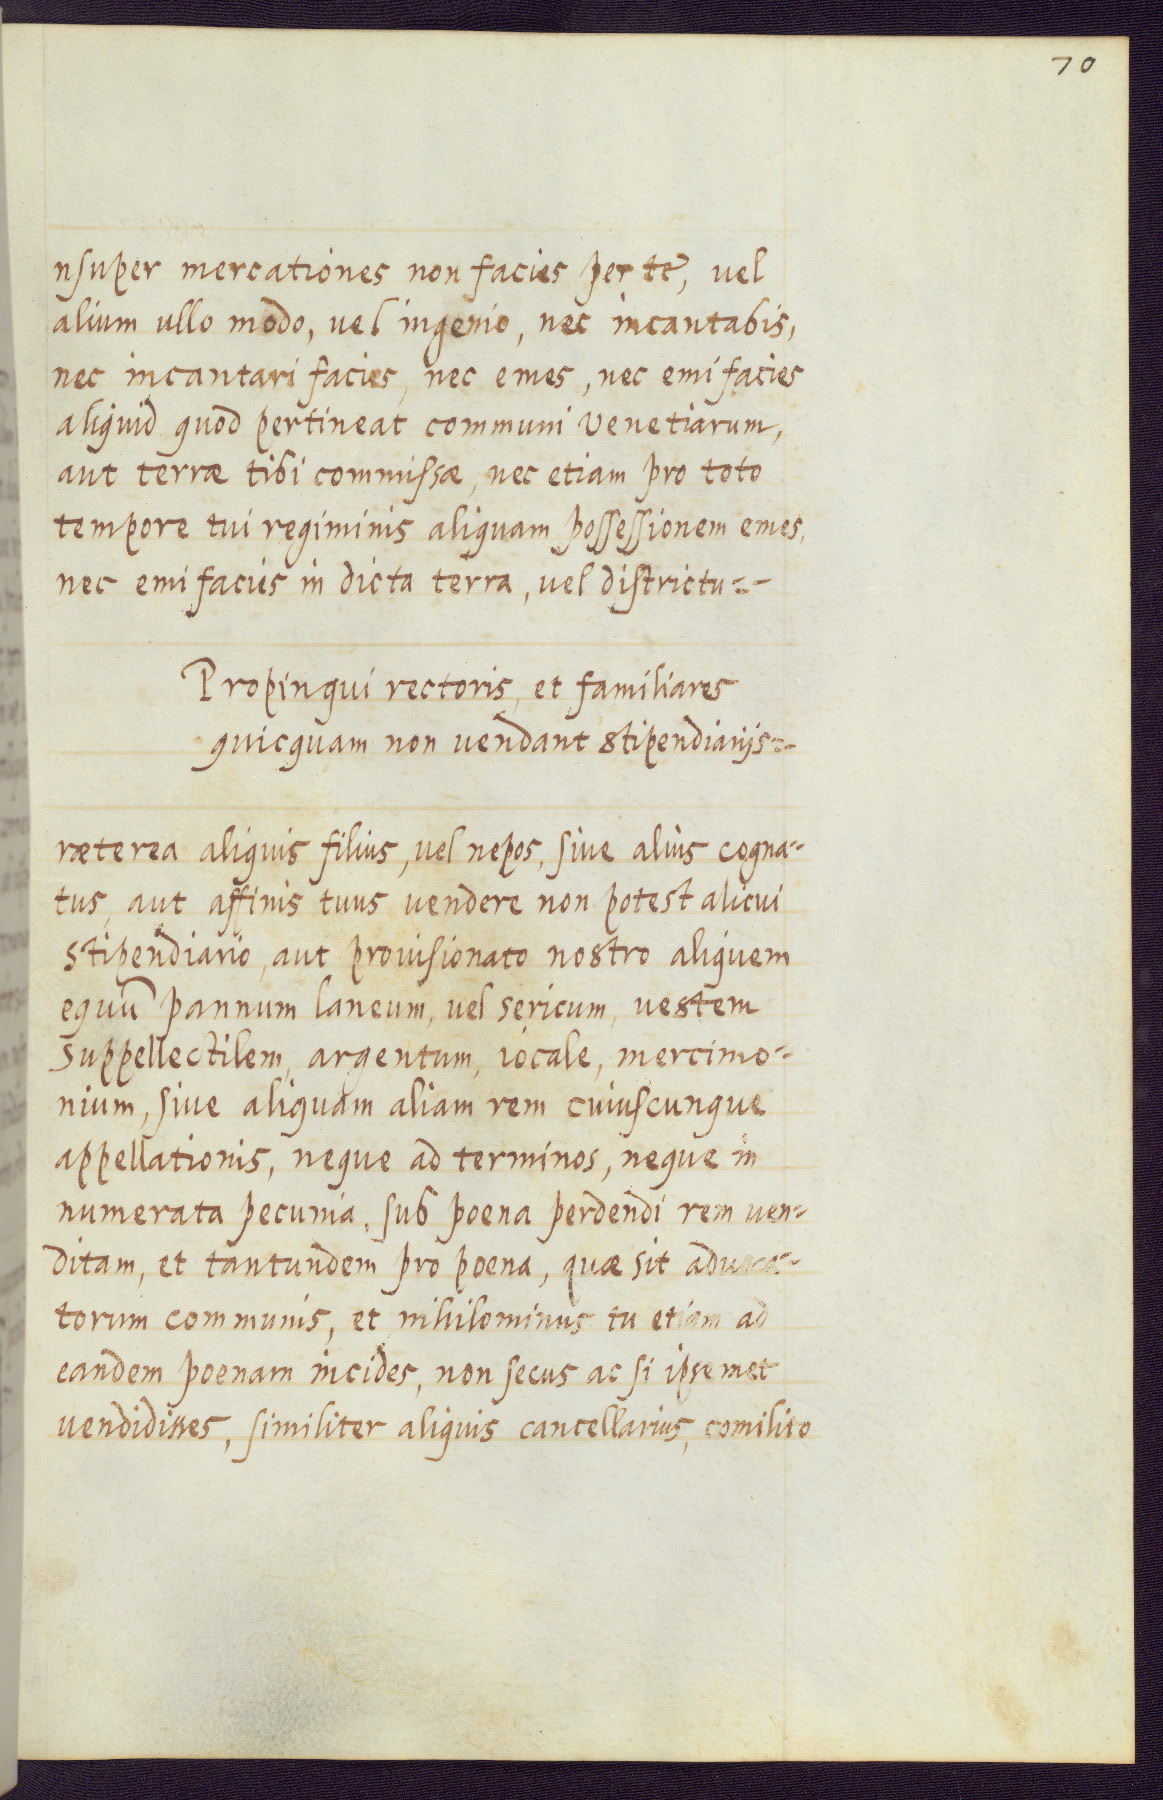 70
nsuper mercationes non facies per te, vel
alium ullo modo, vel ingenio, nec incantabis,
nec incantari facies, nec emes, nec emi facies
aliquid quod pertineat communi Venetiarum,
aut terræ tibi commissæ, nec etiam pro toto
tempore tui regiminis aliquam possessionem emes,
nec emi facies in dicta terra, vel districtu=-
Propinqui rectoris, et familiares
quicquam non vendant stipendiarijs=-
ræterea aliquis filius, vel nepos, sive alius cogna-
tus, aut affinis tuus vendere non potest alicui
stipendiario, aut provisionato nostro aliquem
equū pannum laneum, vel sericum, vestem
suppellectilem, argentum, iocale, mercimo-
nium, sive aliquam aliam rem cuiuscunque
appellationis, neque ad terminos, neque in
numerata pecunia, sub poena perdendi rem ven-
ditam, et tantundem pro poena, quæ sit advoca-
torum communis, et nihilominus tu etiam ad
eandem poenam incides, non secus ac si ipsemet
vendidisses, similiter aliquis cancellarius, comilito